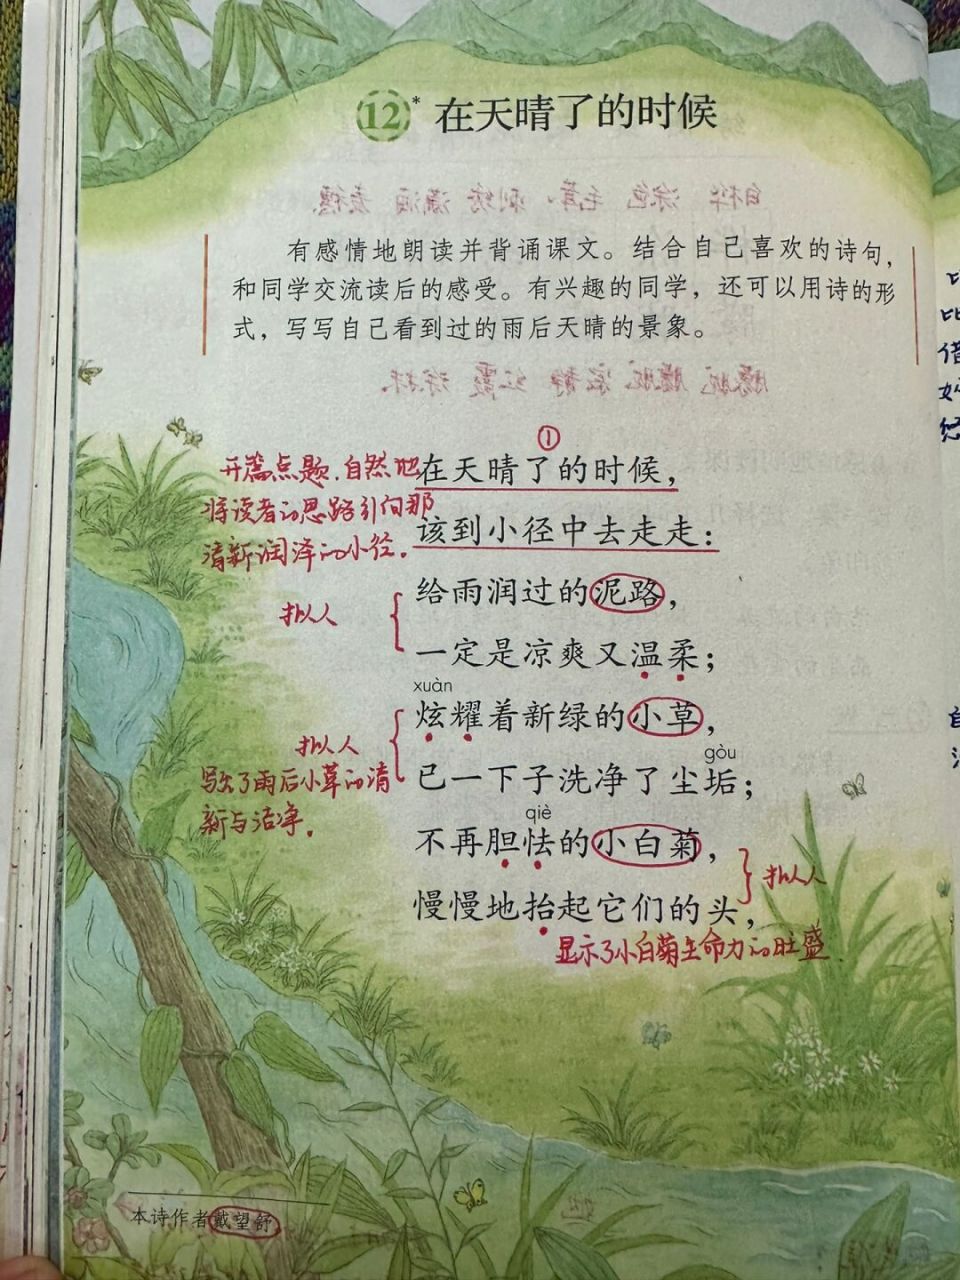 12* 在天晴了的时候
有感情地朗读并背诵课文。结合自己喜欢的诗句,
和同学交流读后的感受。有兴趣的同学，还可以用诗的形
式，写写自己看到过的雨后天晴的景象。
①
开篇点题.自然地
将读者的思路引向那
清新润泽的小径。
在天晴了的时候，
该到小径中去走走：
给雨润过的泥路，
拟人
一定是凉爽又温柔；
xuàn
炫耀着新绿的小草，
拟人
写出了雨后小草的清
新与洁净。
gòu
已一下子洗净了尘垢；
qiè
不再胆怯的小白菊，
拟人
慢慢地抬起它们的头，
显示了小白菊生命力的旺盛
本诗作者戴望舒